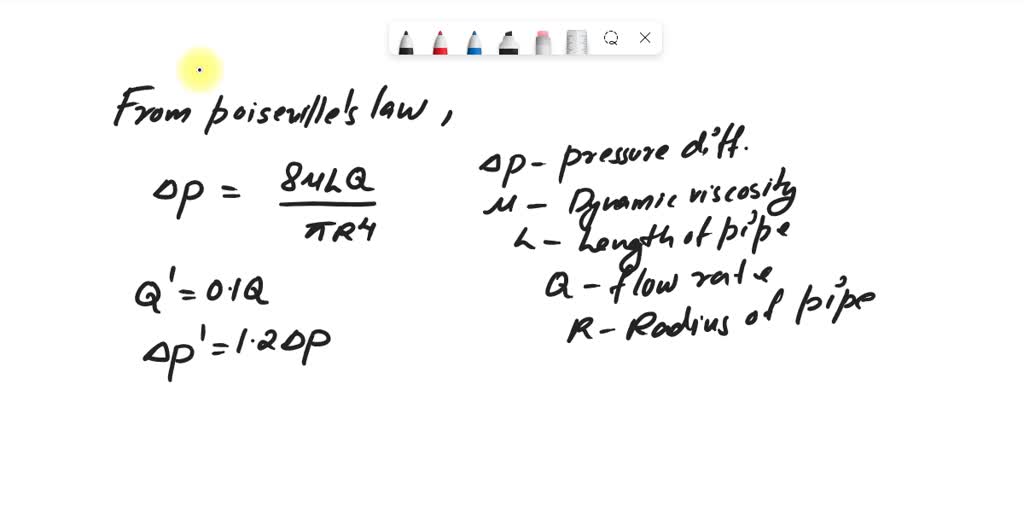 From poiseville's law,
Δp = 8μLQ / πR4
Q' = 0.1Q
Δp' = 1.2Δp
Δp - pressure diff.
μ - Dynamic viscosity
L - Length of pipe
Q - flow rate
R - Radius of pipe